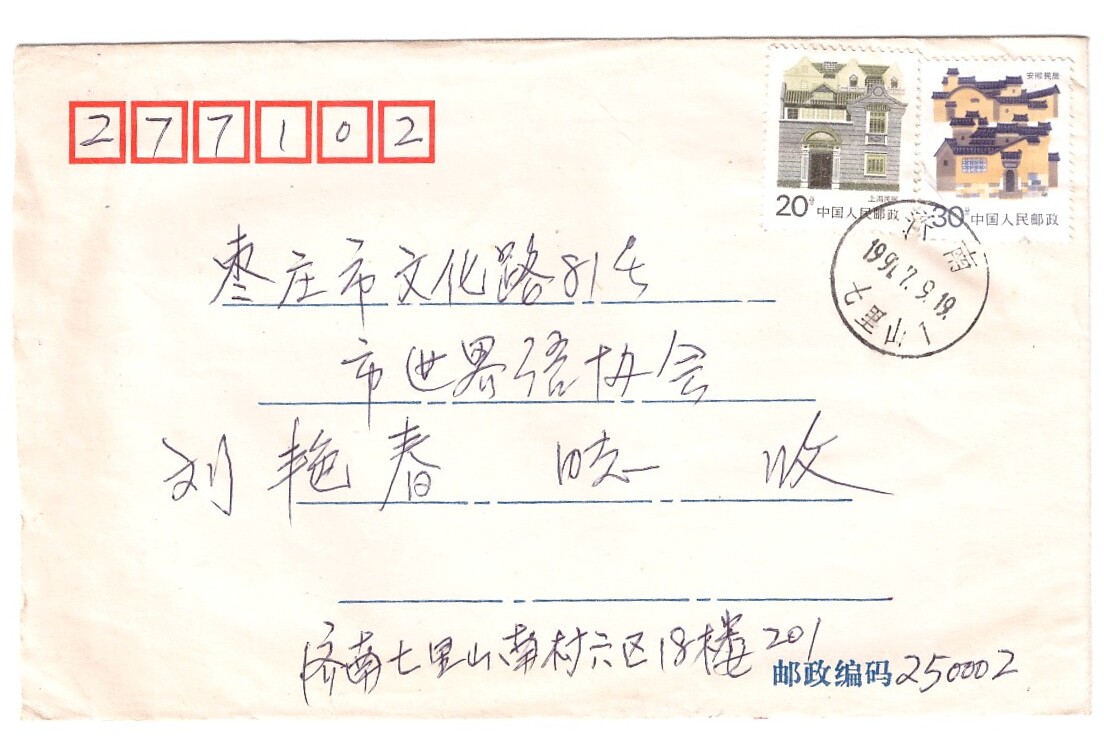 277102
安徽民居
上海民居
20分 中国人民邮政
30分 中国人民邮政
济南
1991.7.5.19
七里山
枣庄市文化路81号
市世界语协会
刘艳春 同志 收
济南七里山南村六区18楼201
邮政编码250002